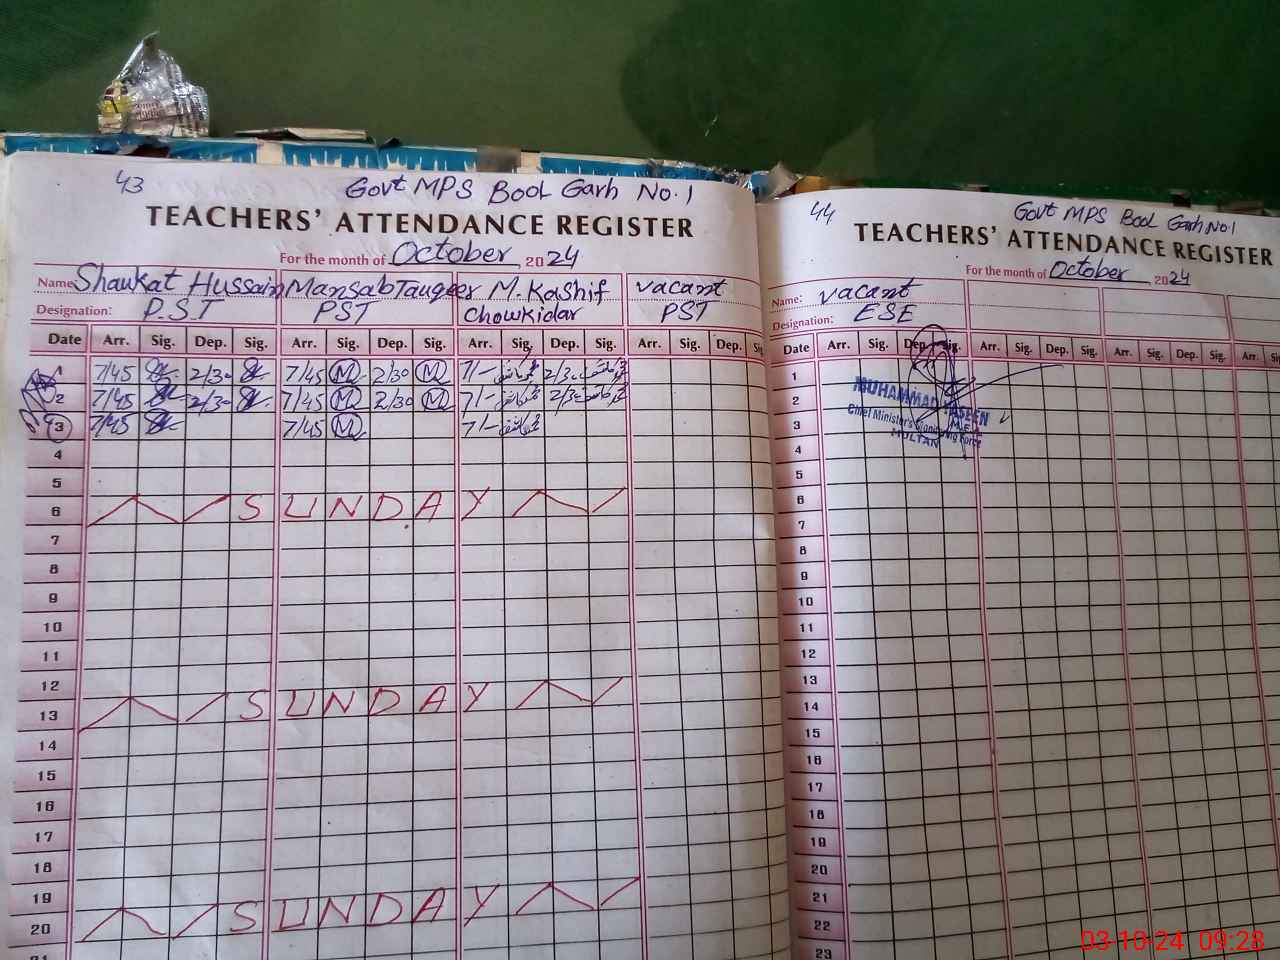 43
Govt MPS Bool Garh No.1
TEACHERS' ATTENDANCE REGISTER
For the month of October 2024
Name Shaukat Hussain Mansab Tauqeer M. Kashif vacant
Designation: P.S.T PST Chowkidar PST
Date Arr. Sig. Dep. Sig. Arr. Sig. Dep. Sig. Arr. Sig. Dep. Sig. Arr. Sig. Dep. Sig.
1 7/45 2/30 7/45 M 2/30 M 7/- 2/30
2 7/45 2/30 7/45 M 2/30 M 7/- 2/30
3 7/45 7/45 M 7/-
4
5
6 SUNDAY
7
8
9
10
11
12
13 SUNDAY
14
15
16
17
18
19
20 SUNDAY
21
44
Govt MPS Bool Garh No1
TEACHERS' ATTENDANCE REGISTER
For the month of October 2024
Name: vacant
Designation: ESE
Date Arr. Sig. Dep. Sig. Arr. Sig. Dep. Sig. Arr. Sig. Dep. Sig. Arr. Sig.
1
2
3
4
5
6
7
8
9
10
11
12
13
14
15
16
17
18
19
20
21
22
23
MUHAMMAD YASEEN
M.E.A
Chief Minister's Monitoring Force
MULTAN
03-10-24 09:28